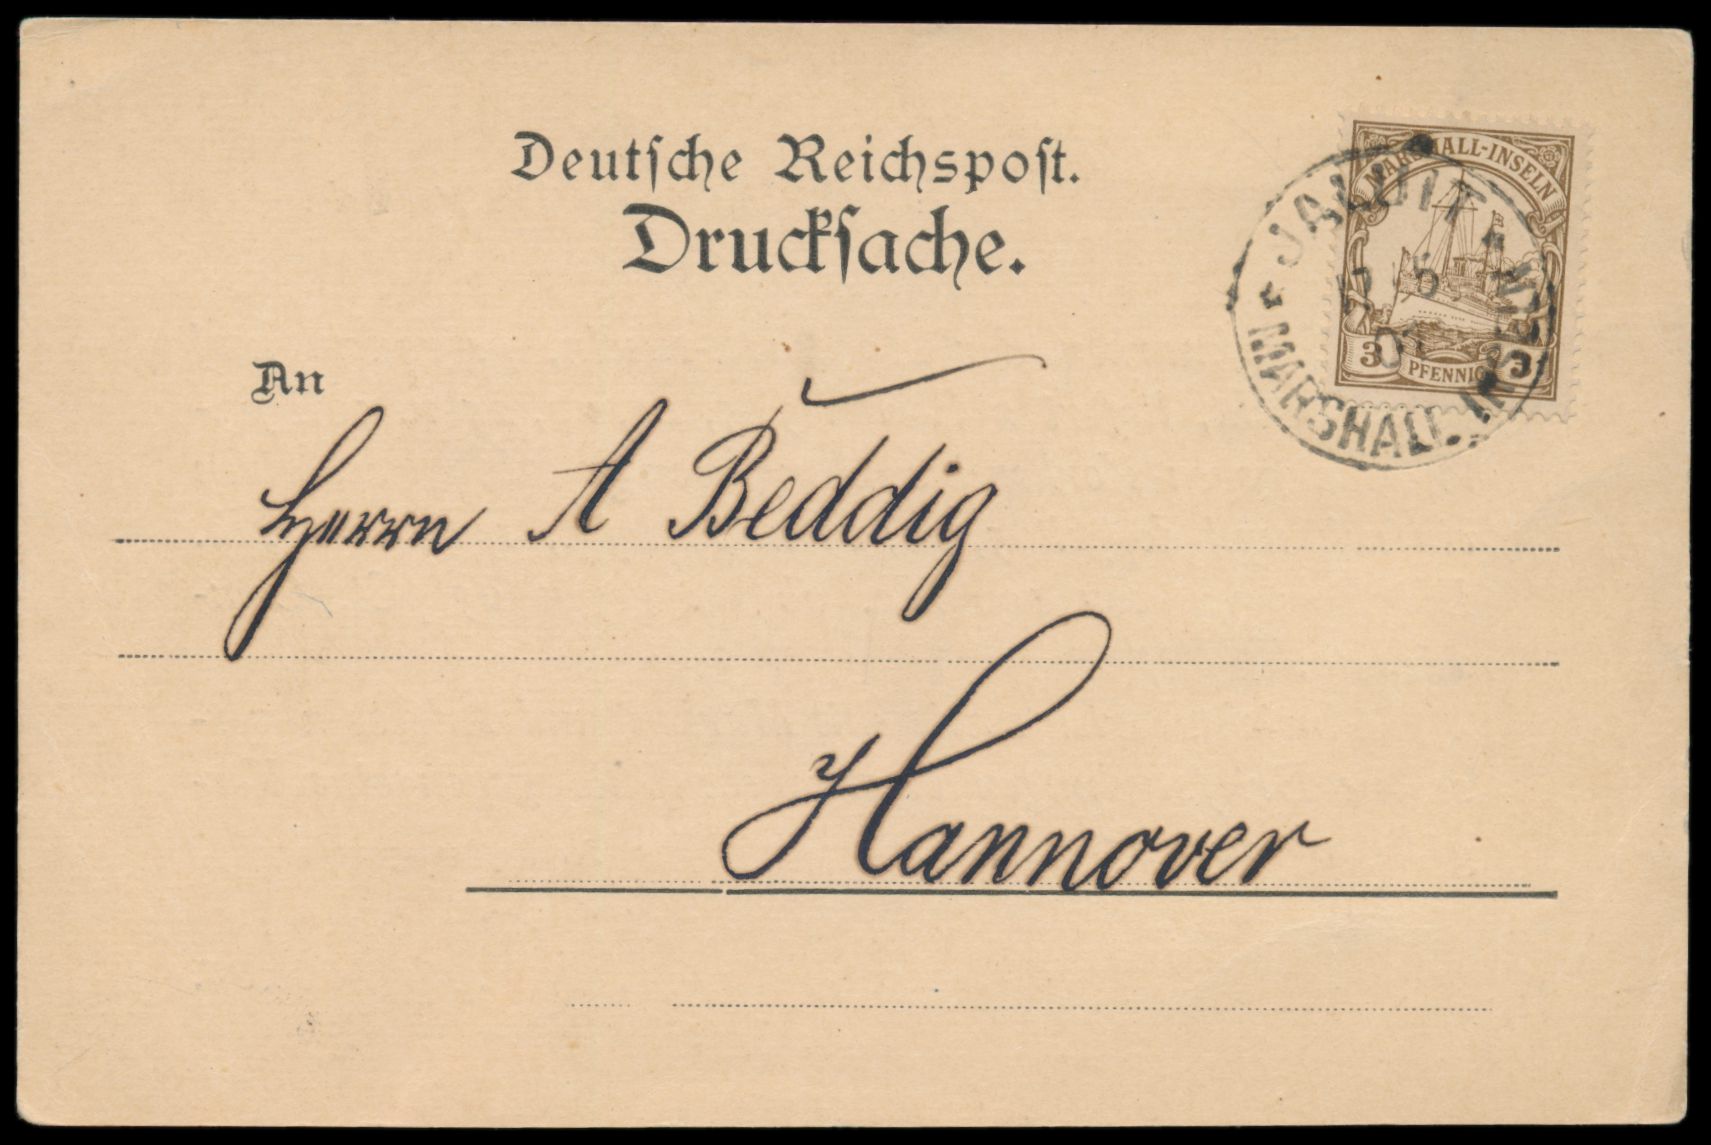 Deutſche Reichspoſt.
Druckſache.
MARSHALL-INSELN
3 PFENNIG 3
JALUIT
MARSHALL-INSELN
An
Herrn A Beddig
Hannover